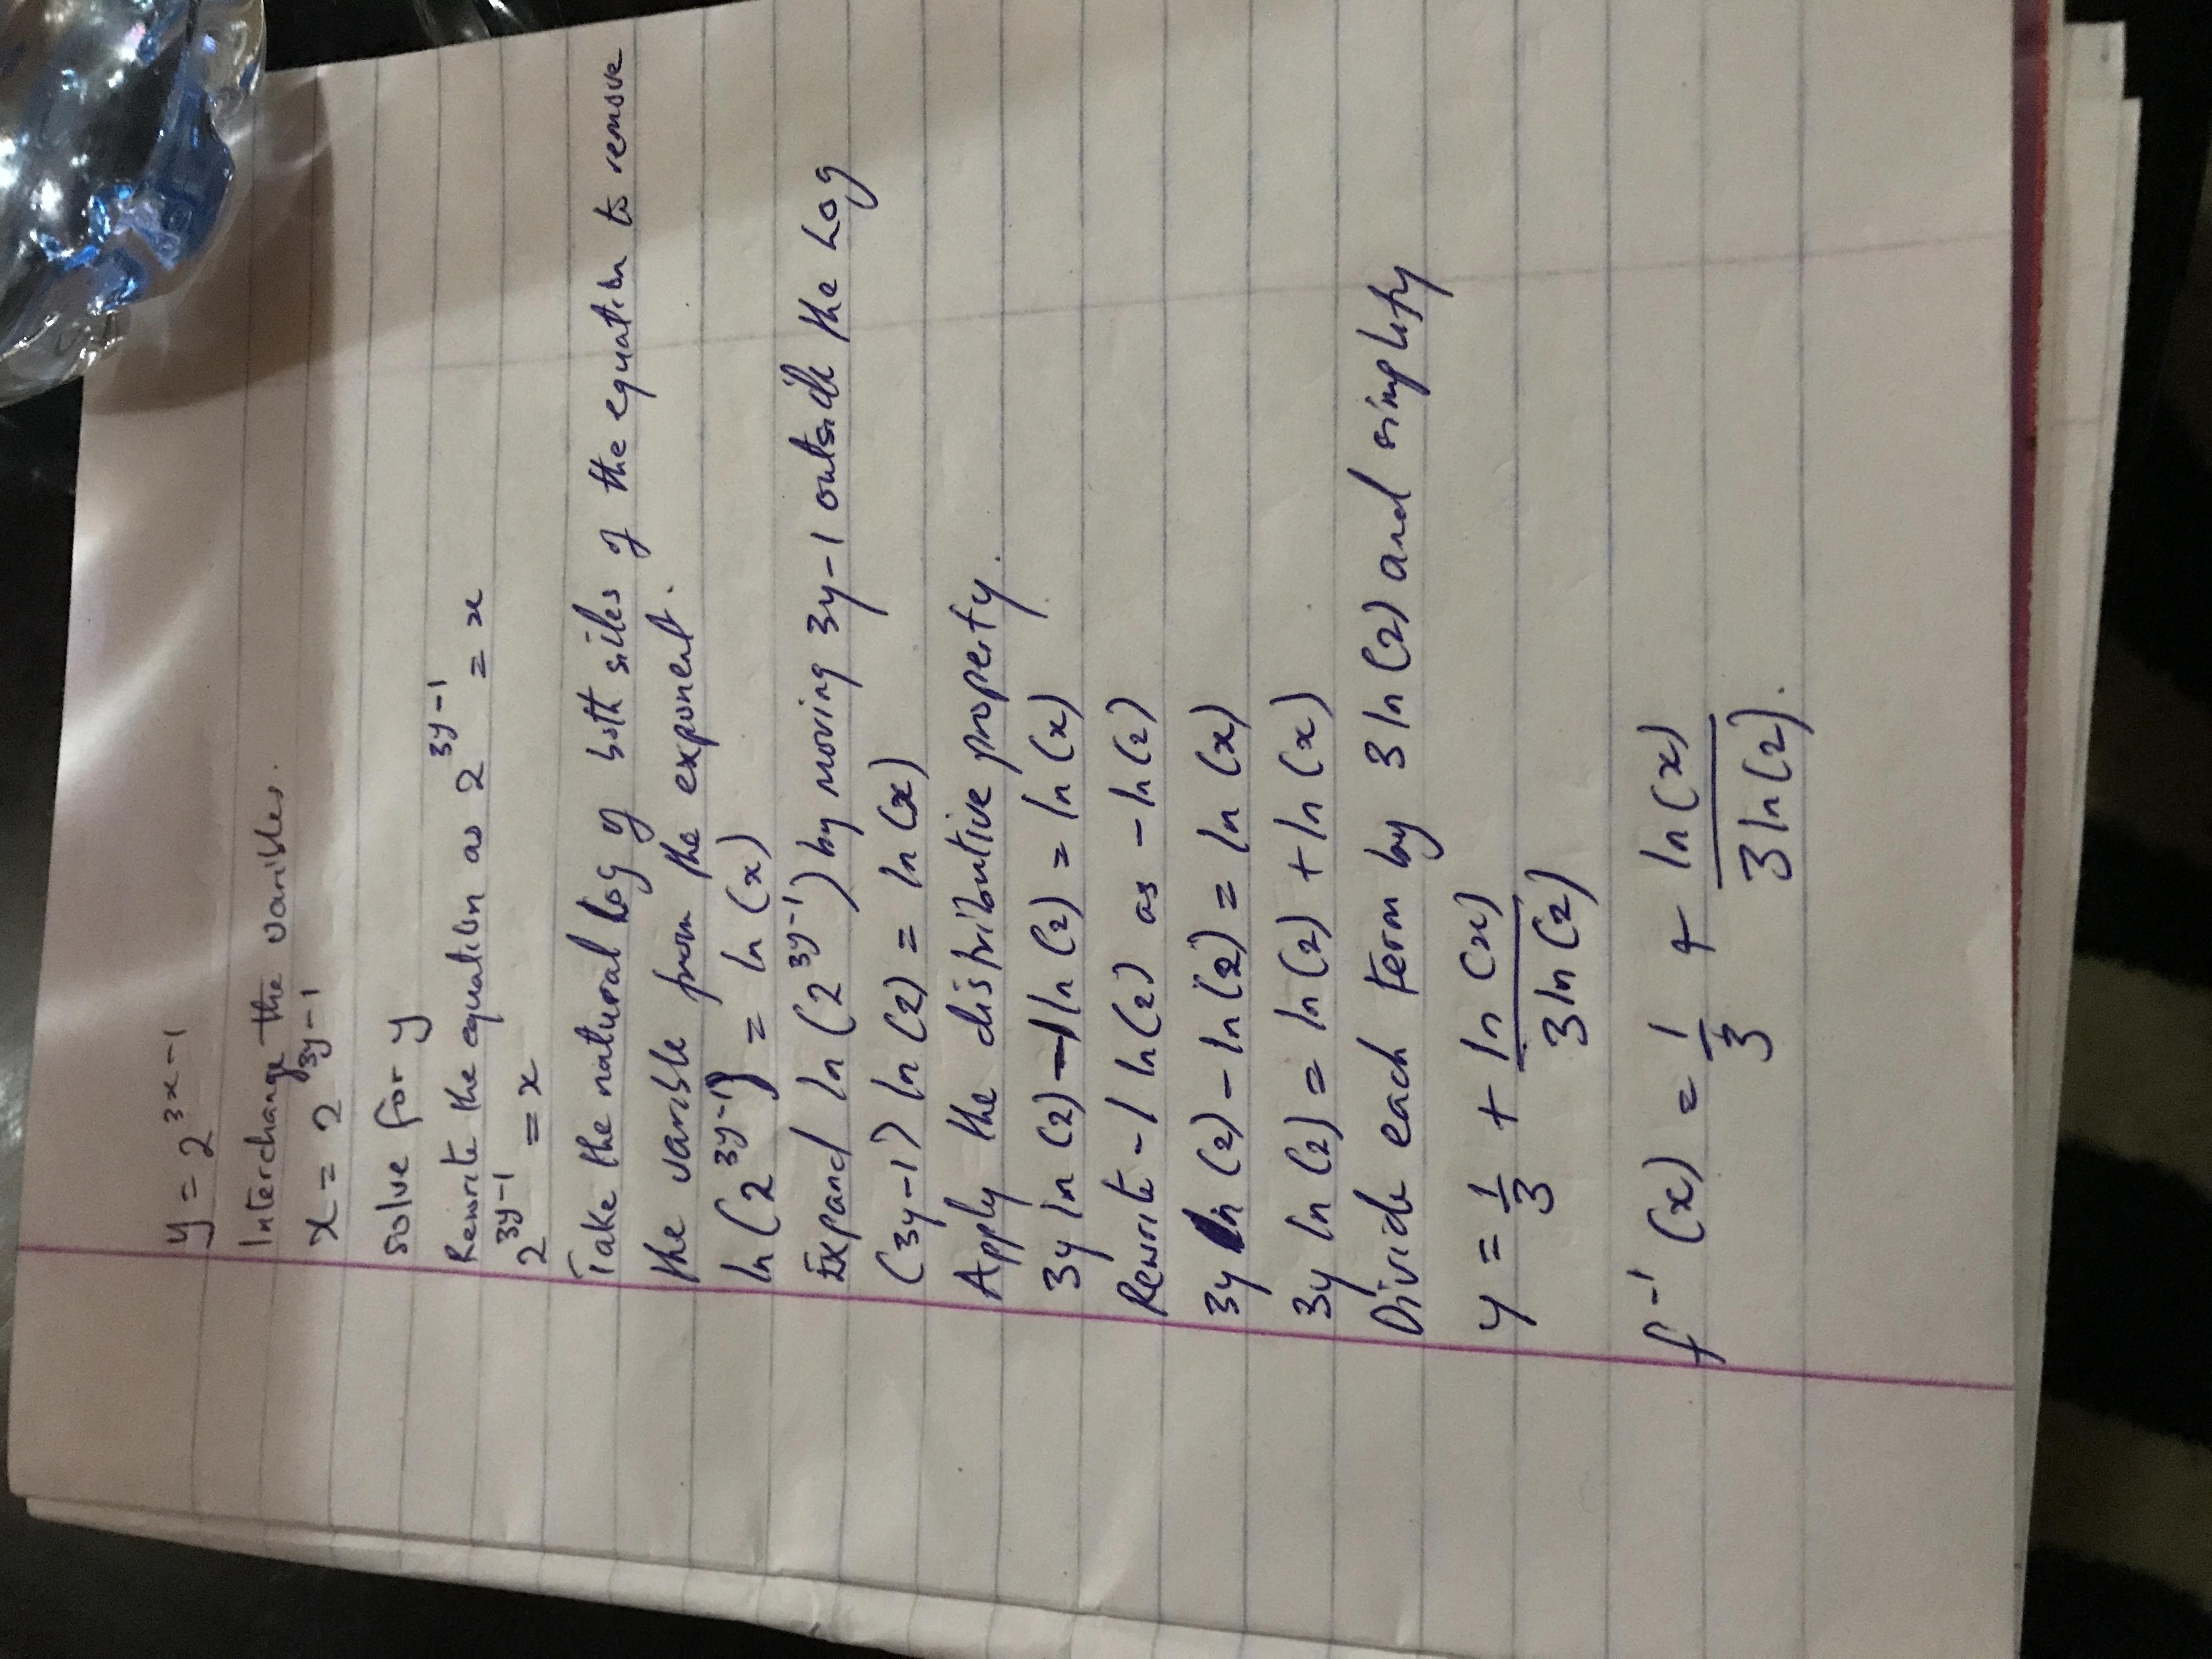 y = 2^{3x-1}
Interchange the varibles.
x = 2^{3y-1}
solve for y
Rewrite the equation as 2^{3y-1} = x
2^{3y-1} = x
Take the natural Log of both sides of the equation to remove
the varible from the exponent.
ln(2^{3y-1}) = ln(x)
Expand ln(2^{3y-1}) by moving 3y-1 outside the Log
(3y-1) ln(2) = ln(x)
Apply the distributive property.
3y ln(2) - 1 ln(2) = ln(x)
Rewrite -1 ln(2) as -ln(2)
3y ln(2) - ln(2) = ln(x)
3y ln(2) = ln(2) + ln(x)
Divide each term by 3 ln(2) and simplify
y = \frac{1}{3} + \frac{ln(x)}{3 ln(2)}
f^{-1}(x) = \frac{1}{3} + \frac{ln(x)}{3 ln(2)}.